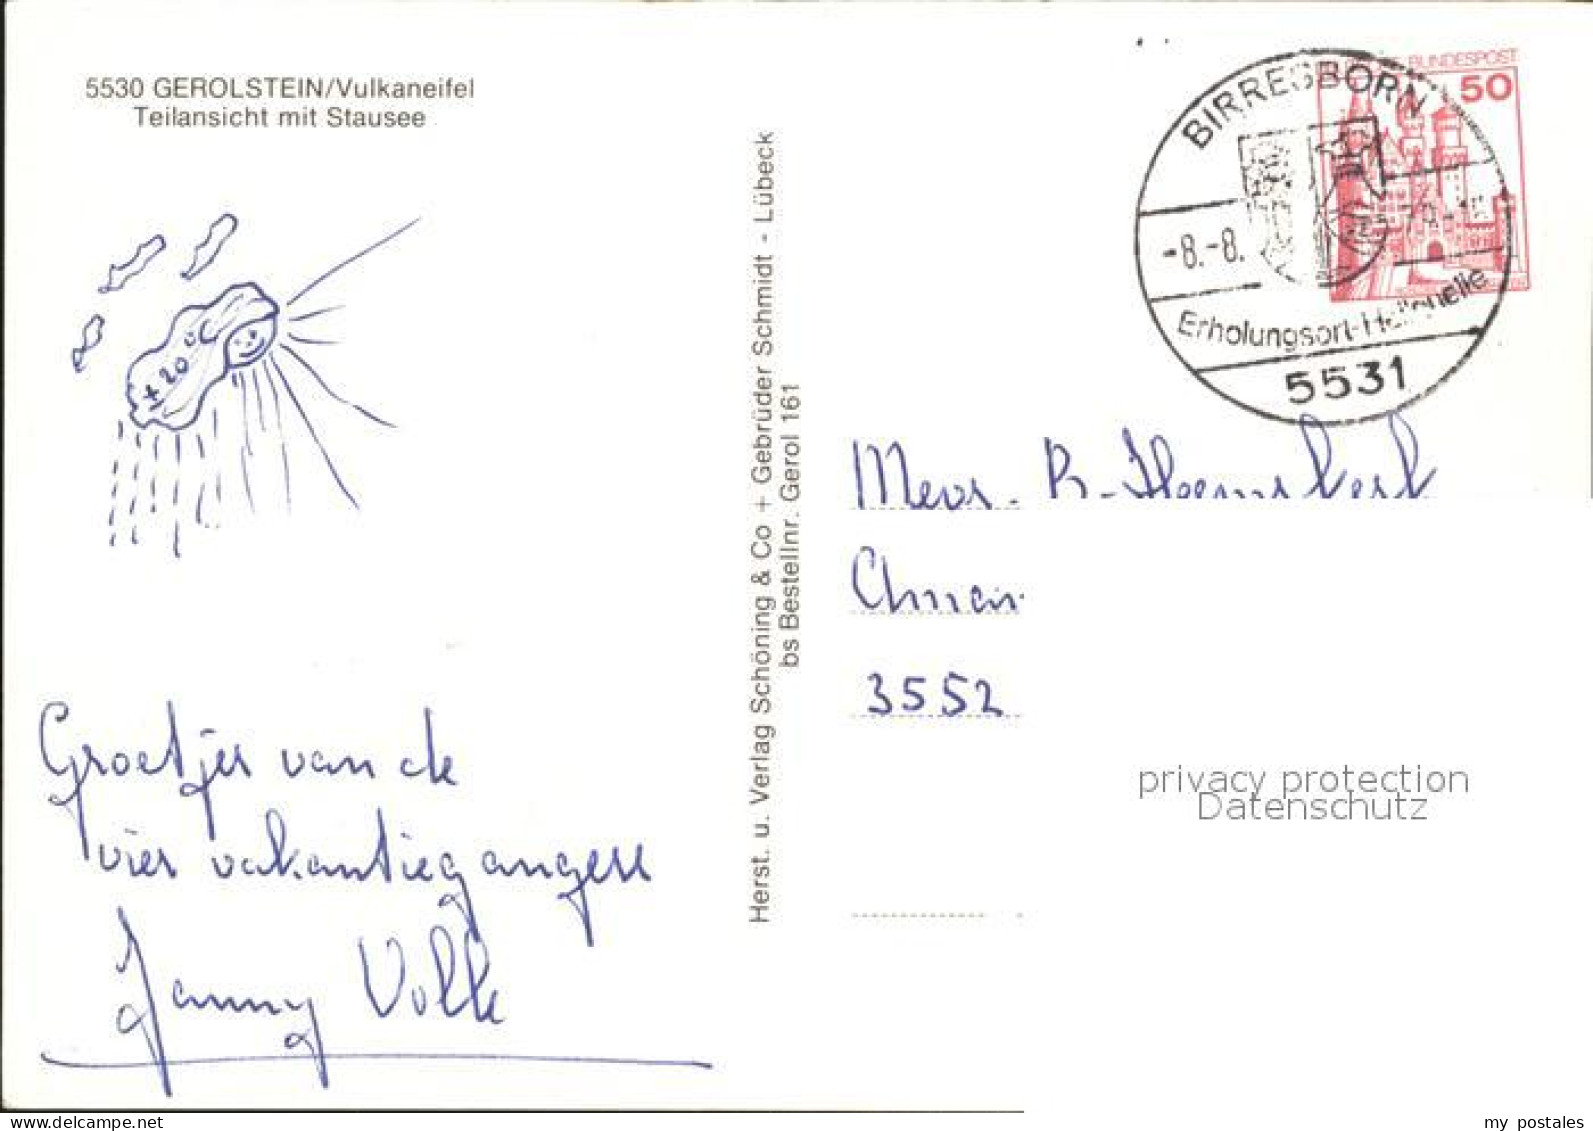 5530 GEROLSTEIN/Vulkaneifel
Teilansicht mit Stausee
+20 °C
Groetjes van de
vier vakantiegangers
Janny Volk
Herst. u. Verlag Schöning & Co + Gebrüder Schmidt - Lübeck
bs Bestellnr. Gerol 161
BUNDESPOST
50
BIRRESBORN
-8.-8.
Erholungsort-Heilquelle
5531
Mevr. B.
3552
privacy protection
Datenschutz
my postales